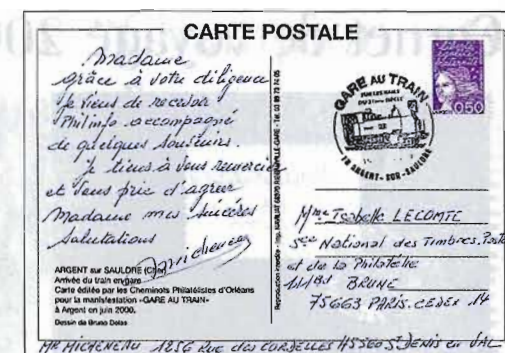 CARTE POSTALE
Madame
grâce à votre diligence
je viens de recevoir
Philinfo accompagné
de quelques soutiens.
je tiens à vous remercier
et vous prie d'agréer
Madame mes sincères
Salutations
ARGENT sur SAULDRE (Cher)
Arrivée du train en gare
Carte éditée par les Cheminots Philatélistes d'Orléans
pour la manifestation «GARE AU TRAIN»
à Argent en juin 2000.
Dessin de Bruno Delas
Reproduction interdite -
GARE AU TRAIN
18 ARGENT - SUR - SAULDRE
0,50
Mme Isabelle LECOMTE
Sce National des Timbres.Poste
et de la Philatélie
BRUNE
75663 PARIS.CEDEX 14
MR MICHENEAU 1256 Rue des CORDELLES 45560 St DENIS en VAL